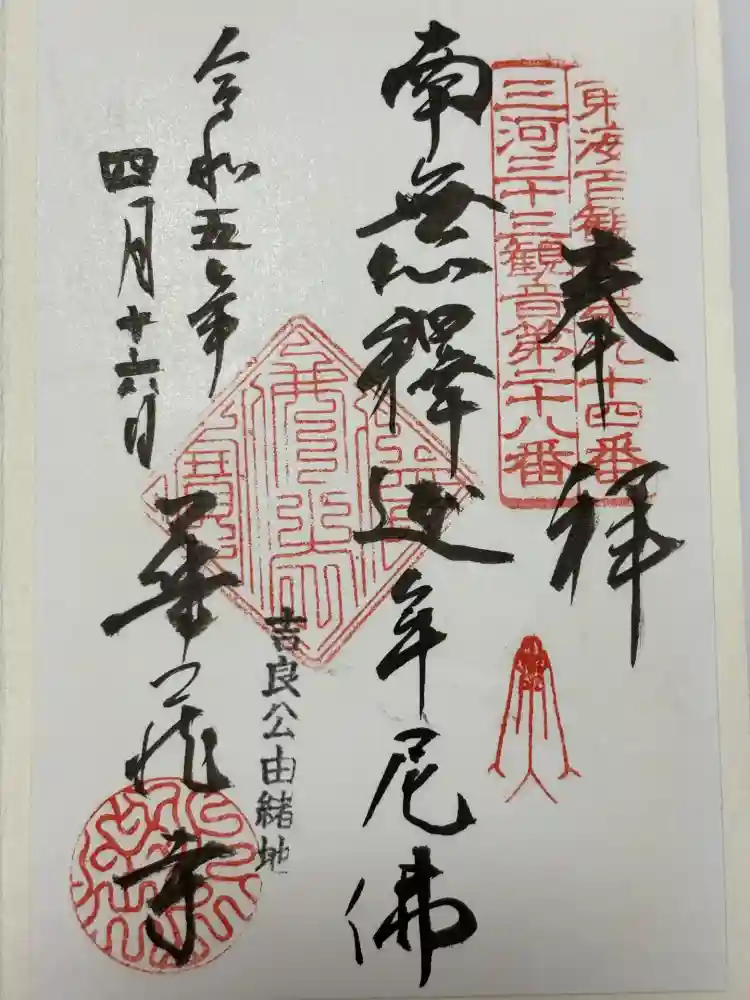 奉拝
三河三十三観音第二十八番
南無釋迦牟尼佛
令和五年
四月十六日
華蔵寺
吉良公由緒地